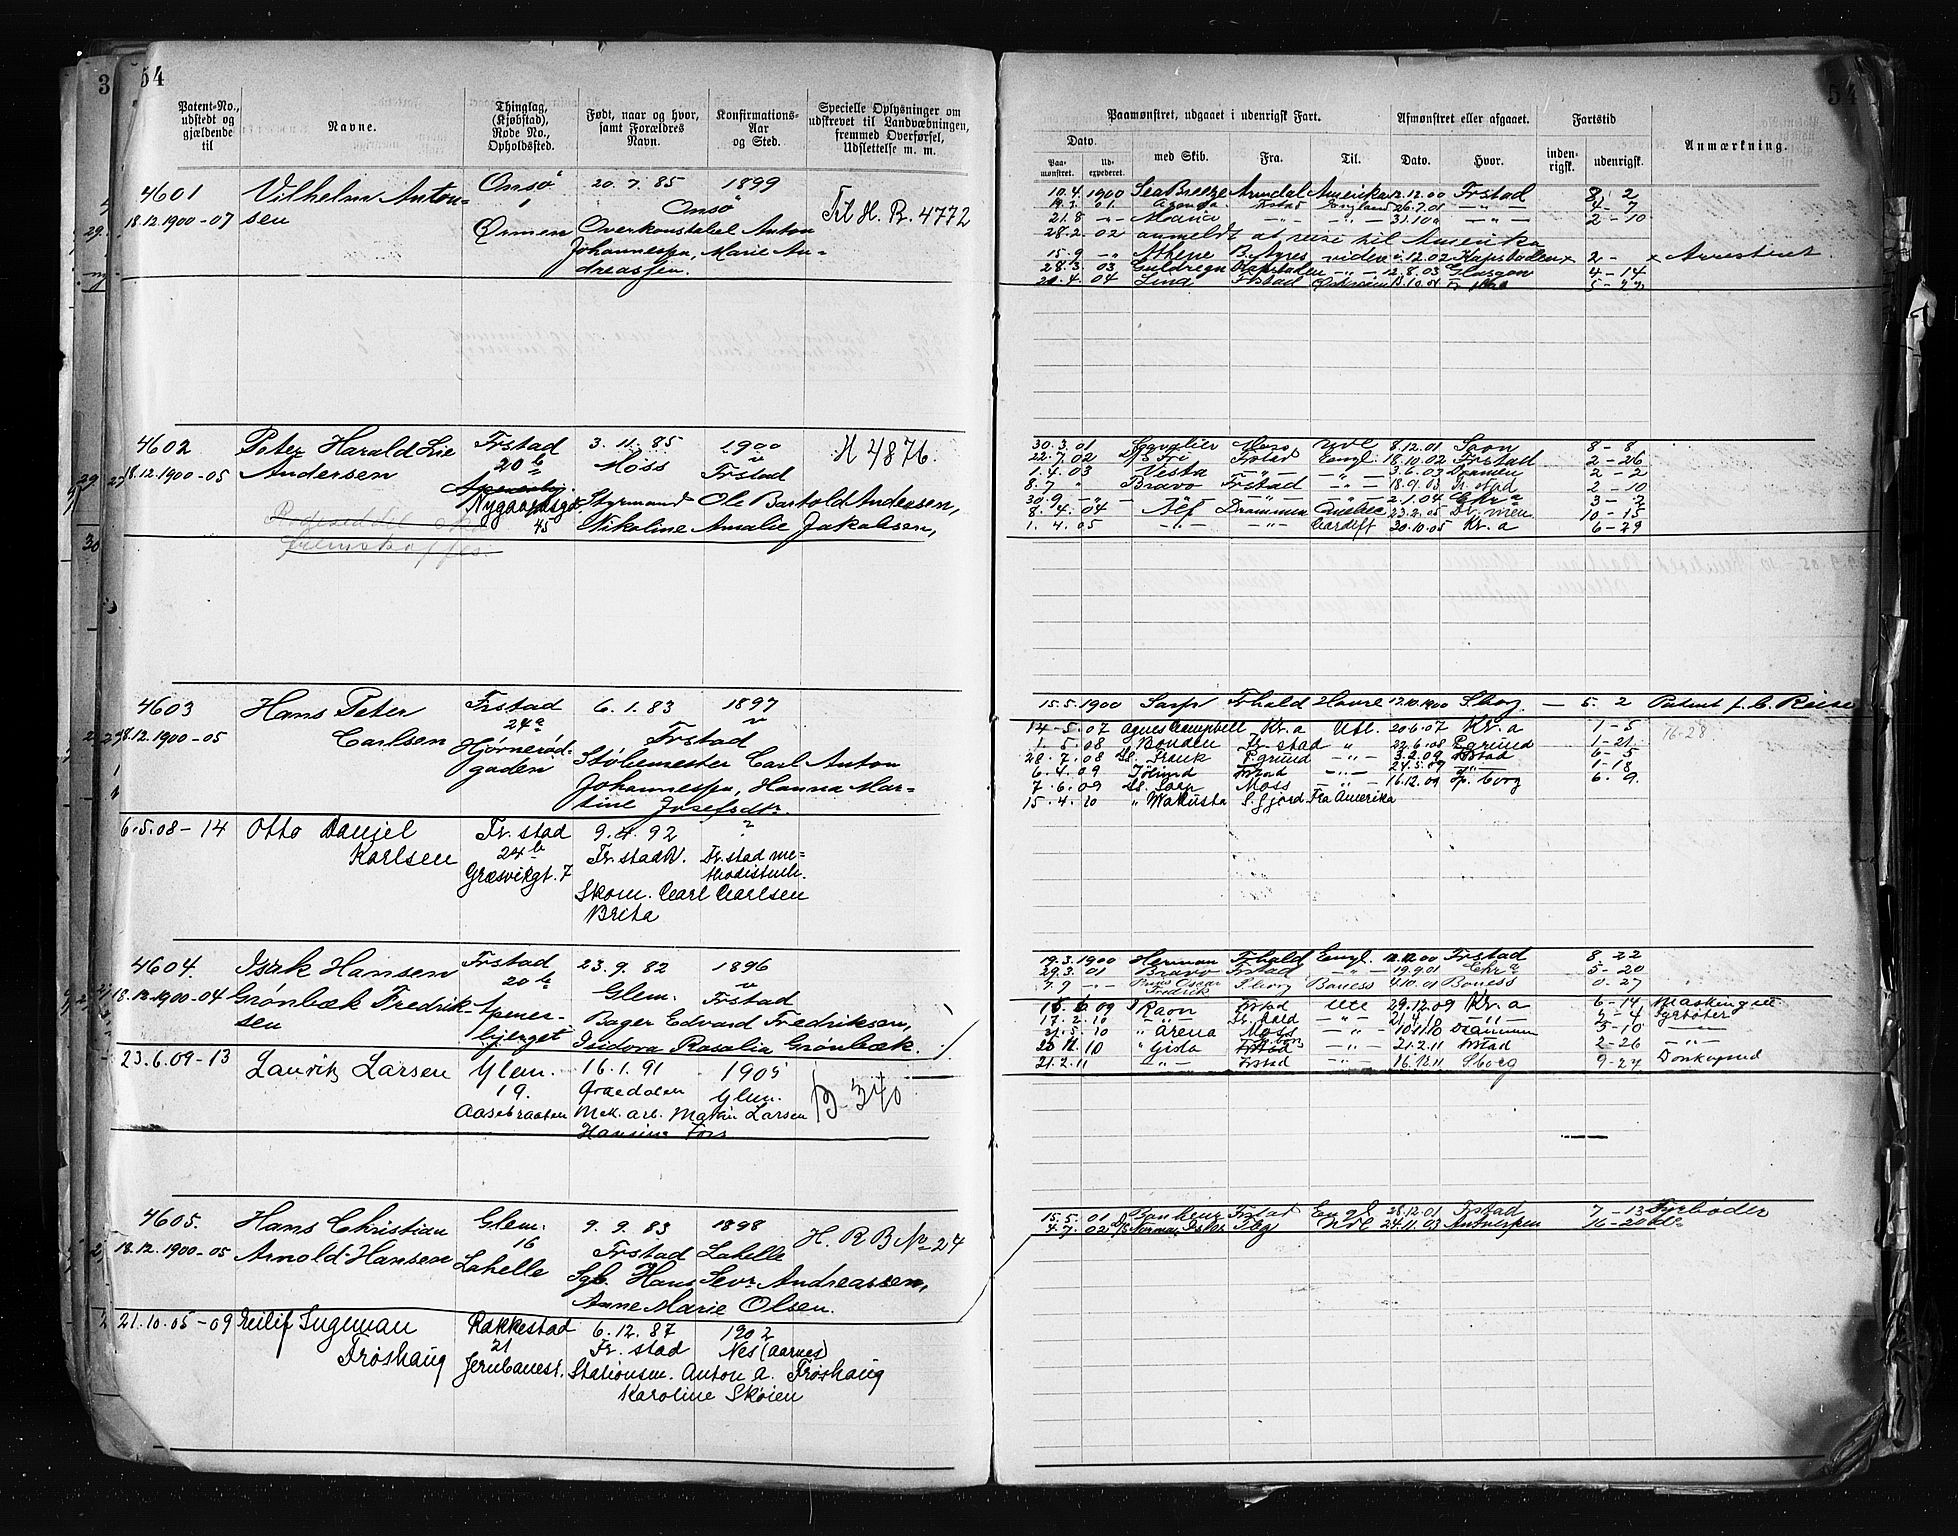 54
Patent-No., udstedt og gjældende til
Navne.
Thinglag, (Kjøbstad), Rode No., Opholdssted.
Født, naar og hvor, samt Forældres Navn.
Konfirmations-Aar og Sted.
Specielle Oplysninger om udskrevet til Landvæbningen, fremmed Overførsel, Udslettelse m. m.
4601 Vilhelm Anton- Onsö 20.7.85 1899
18.12.1900-07 sen 1 Onsö Til H. R. 4772
Ørmen Overkonstabel Anton
Johannessen, Marie An-
dreassen.
4602 Peter Harald Lie Frstad 3.11.85 1900 H 4876.
18.12.1900-05 Andersen 20b Moss Frstad
Nygaardsgd. Styrmand Ole Bartold Andersen,
45 Nikoline Amalie Jakobsen,
4603 Hans Peter Frstad 6.1.83 1897
18.12.1900-05 Carlsen 24a Frstad
Hjørnerød- Støbemester Carl Anton
gaden Johannessen, Hanna Mar-
tine Josefsdtr.
6.5.08-14 Otto Daniel Fr.stad 9.4.92
Karlsen 24b Fr.stad Fr.stad me-
Græsvikgt. 7 thodistmh.
Skom. Carl Carlsen
Brita
4604. Isak Hansen Frstad 23.9.82 1896
18.12.1900-04 Grønbæk Fredrik- 20b Glem. Frstad
sen Spener- Bager Edvard Fredriksen,
bjerget Isidora Rosalia Grønbæk.
23.6.09-13 Lauritz Larsen Glem. 16.1.91 1905
19. Graadalen Glem. B 340
Aasebraaten Mek. arb. Martin Larsen
Hansine Fors
4605. Hans Christian Glem. 9.9.83 1898 H. R B No 24
18.12.1900-05 Arnold Hansen 16 Frstad Lahelle
Lahelle Sgb. Hans Sevr Andreassen,
Anne Marie Olsen.
21.10.05-09 Eilif Ingeman Rakkestad 6.12.87 1902
Frøshaug 21 Fr.stad Nes (Aarnes)
Jernbanest. Stationsm. Anton A. Frøshaug
Karoline Skøien
54
Paamønstret, udgaaet i udenrigsk Fart.
Afmønstret eller afgaaet.
Fartstid
Anmærkning.
Dato.
Paa-mønstret. Ud-expederet. med Skib. Fra. Til. Dato. Hvor. inden-rigsk. udenrigsk.
10.4. 1900 Sea Breeze Arendal Amerika 12.12.00 Frstad 8 2
Frstad England 26.7.01 -"- 7
21.8 -"- -"- -"- 31.10 -"- 2-10
28.2.02 anmeldt at reise til Amerika
15.9 -"- Athene B. Ayres viden 12.02 Kapstaden x 2- x Arresteret
28.3.03 Guldregn Kapstaden -"- 12.8.03 Glasgow 4-14
.4.04 Frstad 5-23
30.3.01 Cavalier Moss Udl 8.12.01 Savn 8-8
22.7.02 D/S Tri Frstad Engl. 18.10.02 Frstad 2-26
1.4.03 Vesta -"- -"- 3.6.03 Drammen 2-2
8.7 " Bravo Frstad -"- 18.9.03 Fr.stad 2-10
30.9 -"- -"- -"- 2.1.04 Chra 3-2
8.4.04 Alf Drammen Quebec 23.2.05 Dr.men 10-15
1.4.05 -"- -"- Cardiff 30.10.05 Kr.a 6-29
15.5.1900 Sarp Frhald Havre 12.10.1900 Sborg - 5. 2 Patent f. C. Reise
14-5.07 Agnes Campbell Kr.a Utl. 20.6.07 Kr.a 1-5
16-28
1.5.08 Bonden Fr.stad " 22.6.08 P.grund 1-21
28.7.08 P.grund -"- 3.2.09 Frstad 6-5
6.4.09 Frstad -"- 24.5.09 -"- 1-18
7.6.09 Moss -"- 16.12.09 Sp.borg 6. 9.
15.4.10 " Wakusta S.fjord Fra Amerika
19.3.1900 Herman Frhald Engl. .12.00 Frstad 8. 22
29.3.01 Bravo Frstad -"- 19.9.01 Chra 5-20
-"- Prins Oscar Fredrik Sborg Boness 4.10.01 Boness 0-27
15.6.09 Ravn Frstad Utl 29.12.09 Kr.a 6-14 Maskingut
17.2.10 -"- Fr.hald -"- 21.4.10 -"- 2-4 Fyrbøter
21.5.10 " Arena Moss -"- 10.11.10 Drammen 5-10 -"-
25.11.10 " Gida -"- 21.2.11 Frstad 2-26 -"-
21.2.11 -"- Frstad -"- 16.12.11 Sborg 9-24 Donkeymd
15.5.01 Frstad Engl 28.12.01 Frstad 7-13 Fyrbøder
4.7.02 D/S Sbg Udl 24.11.03 Antverpen 16-20 do